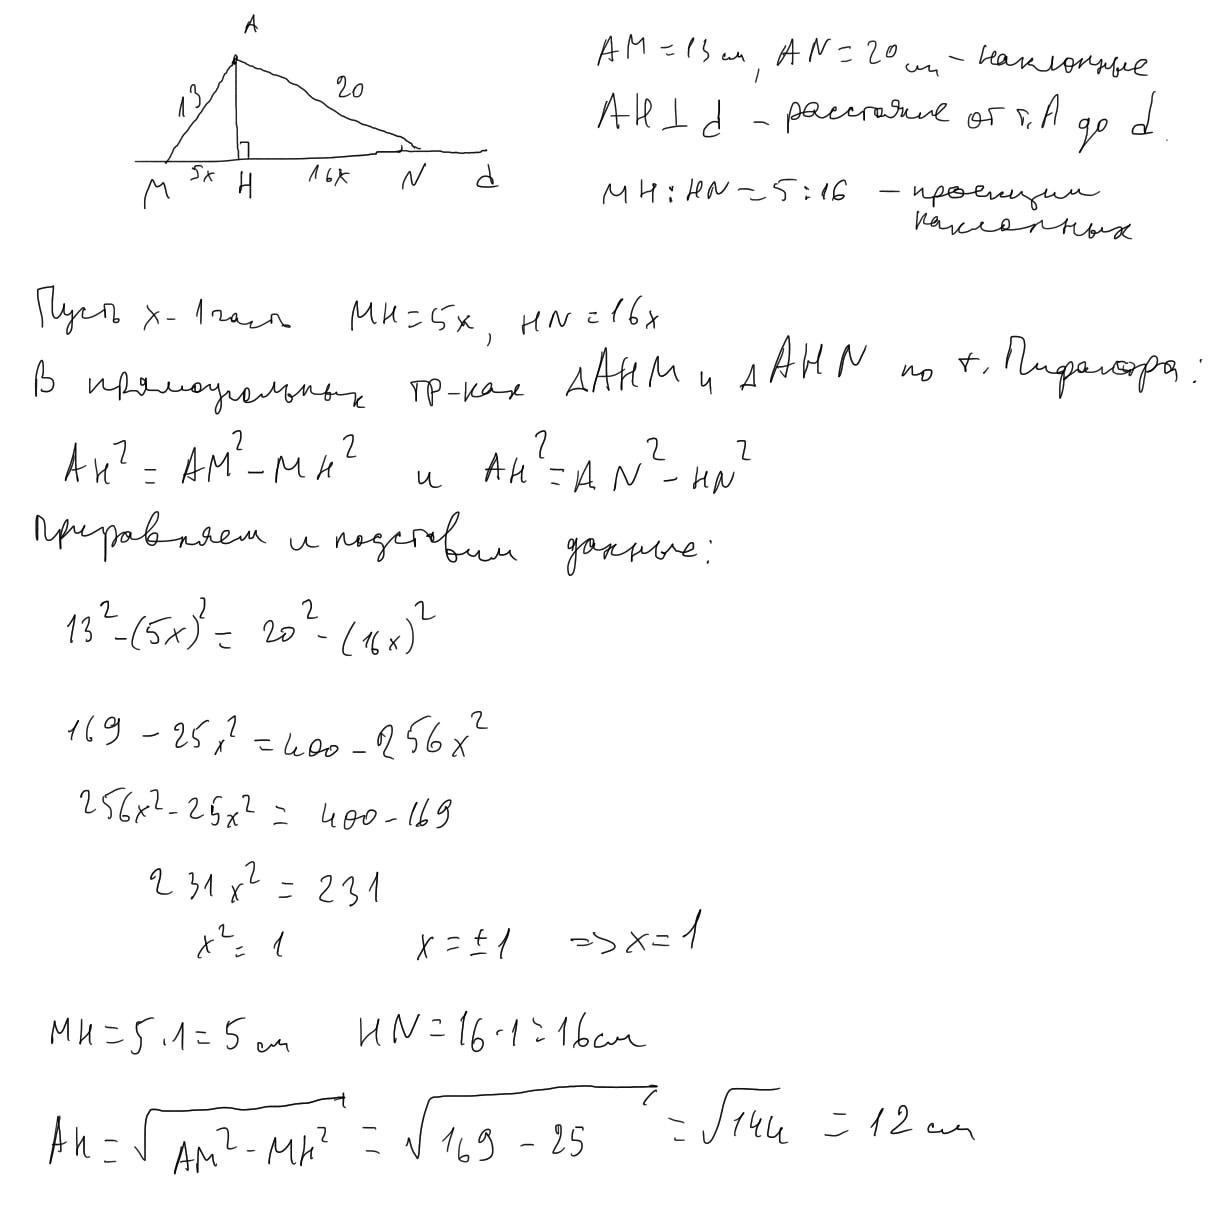 A
13
20
5x
16x
M H N d
AM = 13 см, AN = 20 см - наклонные
AH ⊥ d - расстояние от т. A до d.
MH : HN = 5 : 16 - проекции
наклонных
Пусть x - 1 часть MH = 5x, HN = 16x
В прямоугольных тр-ках △AHM и △AHN по т. Пифагора:
AH² = AM² - MH² и AH² = AN² - HN²
Приравняем и подставим данные:
13² - (5x)² = 20² - (16x)²
169 - 25x² = 400 - 256x²
256x² - 25x² = 400 - 169
231x² = 231
x² = 1 x = ±1 => x = 1
MH = 5·1 = 5 см HN = 16·1 = 16 см
AH = √(AM² - MH²) = √(169 - 25) = √144 = 12 см